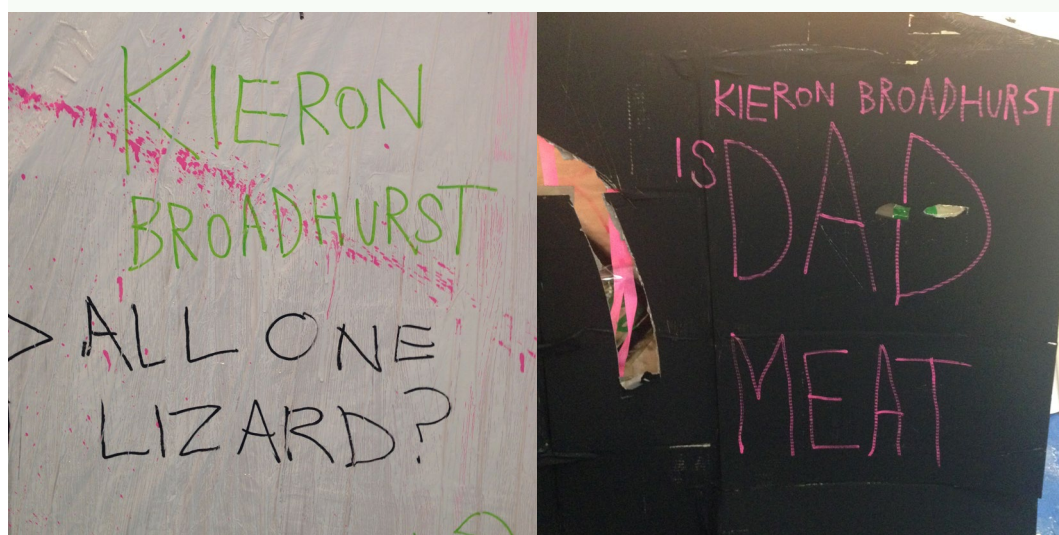 KIERON
BROADHURST
> ALL ONE
LIZARD?
KIERON BROADHURST
IS DAD
MEAT